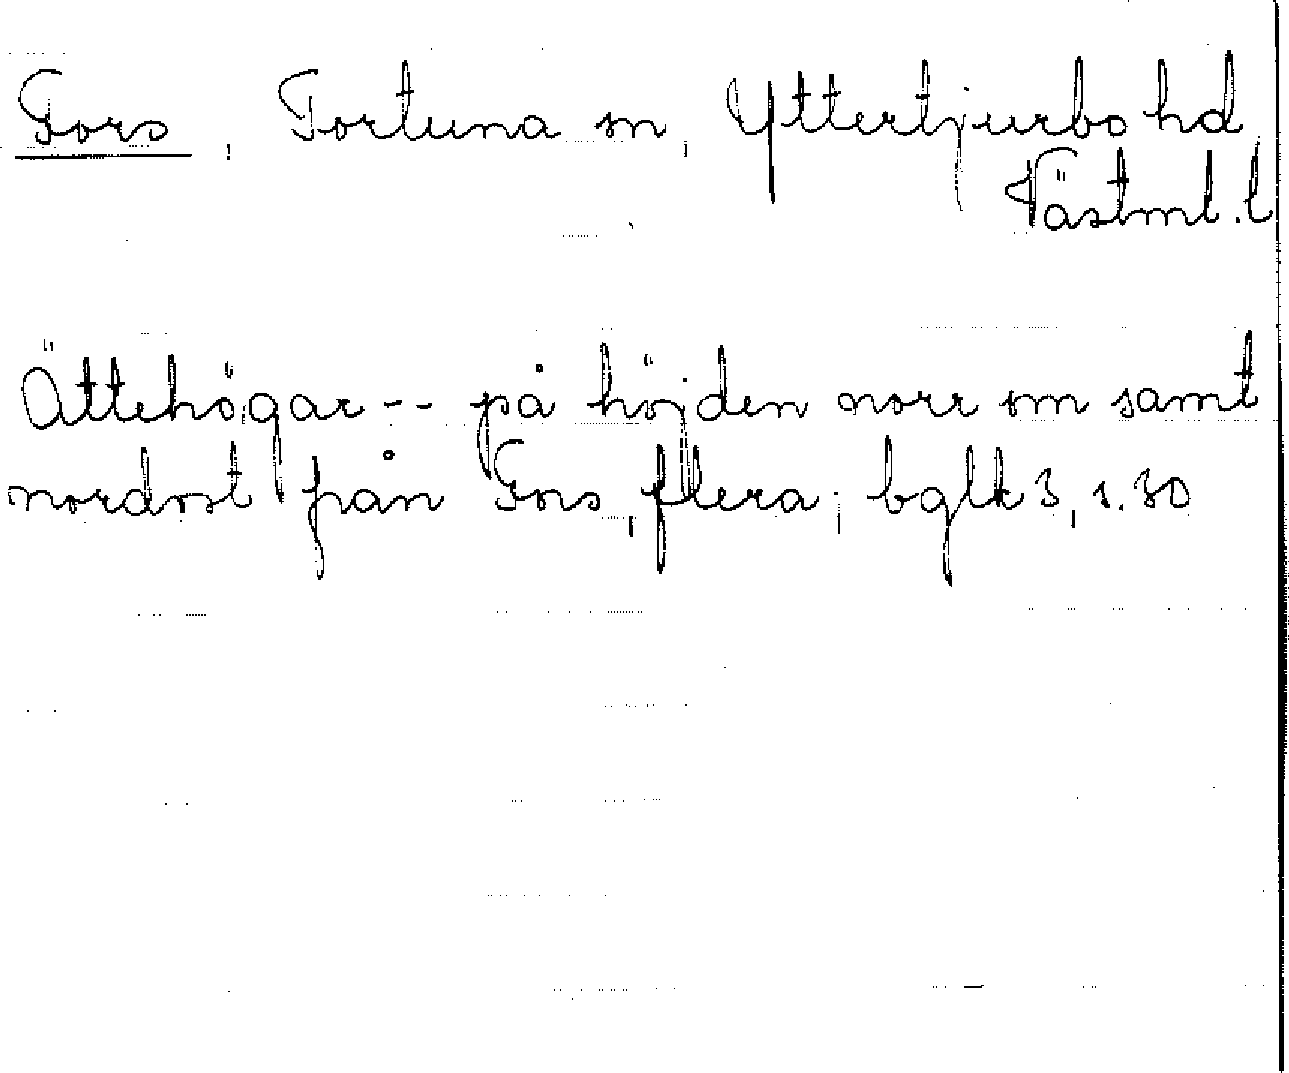 Fors, Tortuna sn, Yttertjurbo hd
Västml.l
Ättehögar -- på höjden norr om samt
nordost från Fors, flera; bglk 3, 1.30